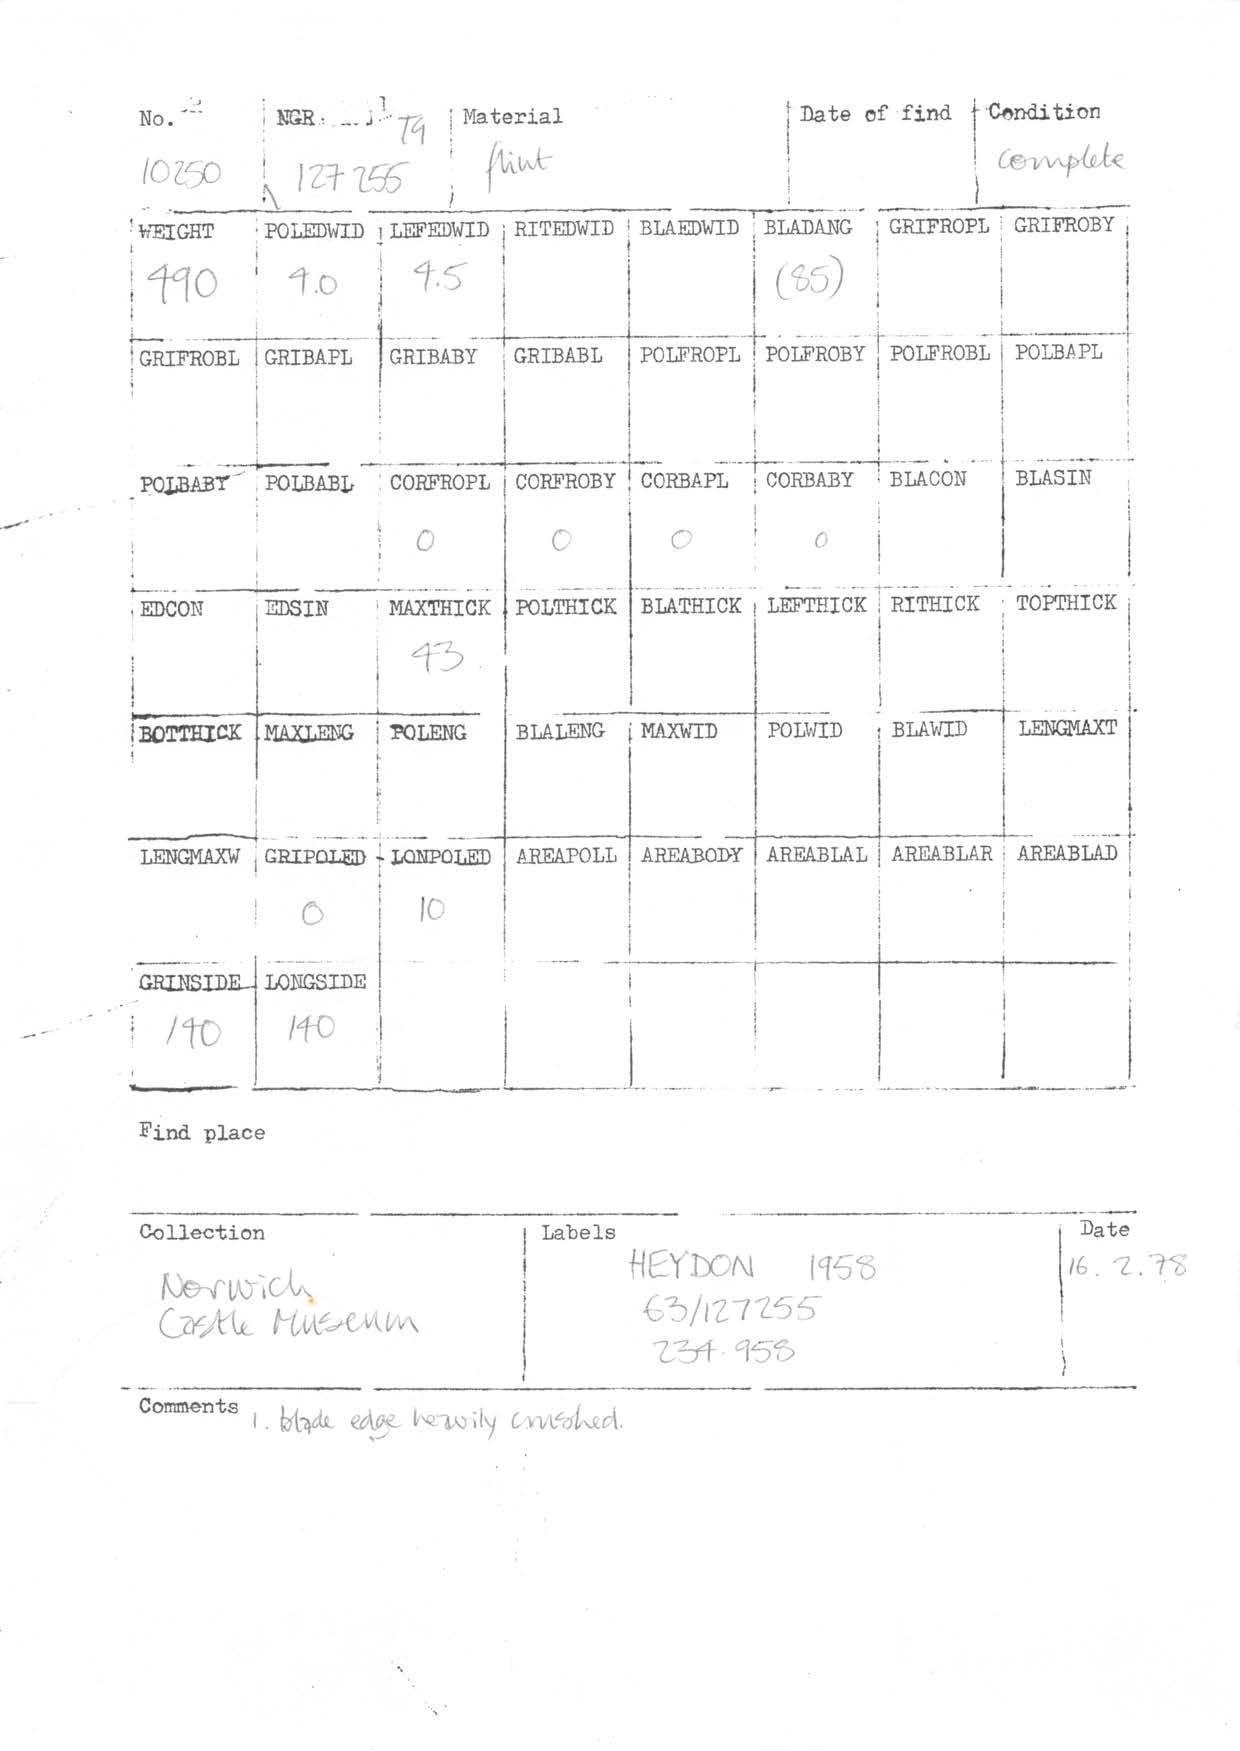 No. NGR TG Material Date of find Condition
10250 127 255 flint complete
WEIGHT POLEDWID LEFEDWID RITEDWID BLAEDWID BLADANG GRIFROPL GRIFROBY
490 4.0 4.5 (85)
GRIFROBL GRIBAPL GRIBABY GRIBABL POLFROPL POLFROBY POLFROBL POLBAPL
POLBABY POLBABL CORFROPL CORFROBY CORBAPL CORBABY BLACON BLASIN
0 0 0 0
EDCON EDSIN MAXTHICK POLTHICK BLATHICK LEFTHICK RITHICK TOPTHICK
43
BOTTHICK MAXLENG POLENG BLALENG MAXWID POLWID BLAWID LENGMAXT
LENGMAXW GRIPOLED LONPOLED AREAPOLL AREABODY AREABLAL AREABLAR AREABLAD
0 10
GRINSIDE LONGSIDE
140 140
Find place
Collection Labels Date
HEYDON 1958 16.2.78
Norwich 63/127255
Castle Museum 234.958
Comments 1. blade edge heavily crushed.